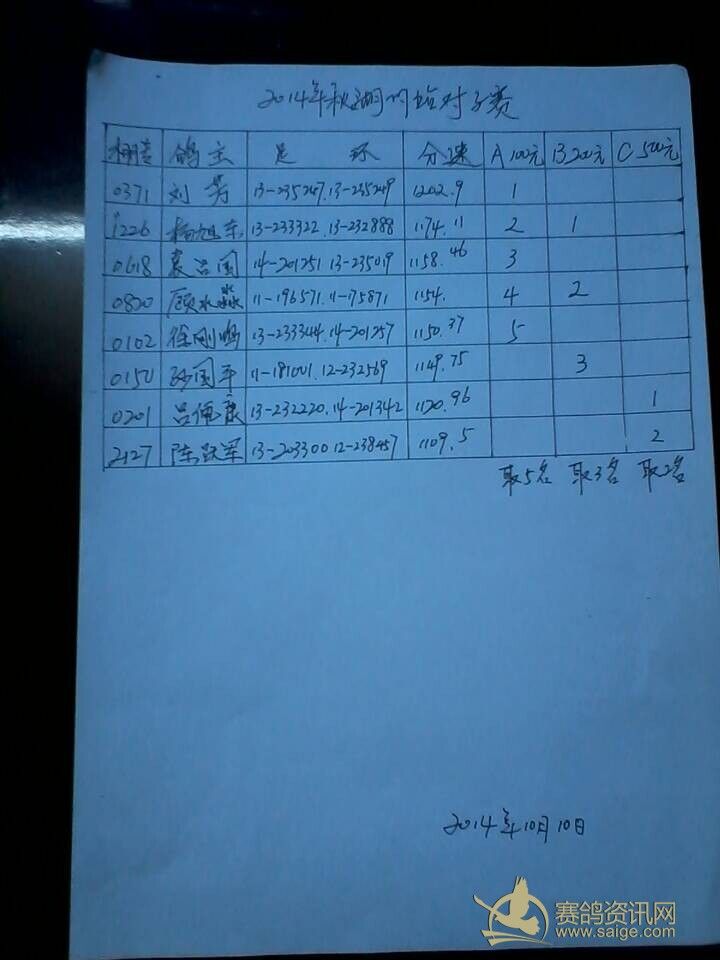 2014年秋湖川站对子赛
棚号 鸽主 足 环 分速 A 100元 B 200元 C 500元
0371 刘芳 13-235247.13-235249 1202.9 1
1226 杨旭东 13-233322.13-232888 1174.11 2 1
0618 袁吕国 14-201251 13-235019 1158.46 3
0800 顾水淼 11-196571.11-175871 1154. 4 2
0102 徐刚鸣 13-233344.14-201257 1150.37 5
0150 孙国平 11-181001.12-232569 1149.75 3
0201 吕佩康 13-232220.14-201342 1120.96 1
2127 陈跃军 13-203300 12-238457 1109.5 2
取5名 取3名 取2名
2014年10月10日
赛鸽资讯网
www.saige.com